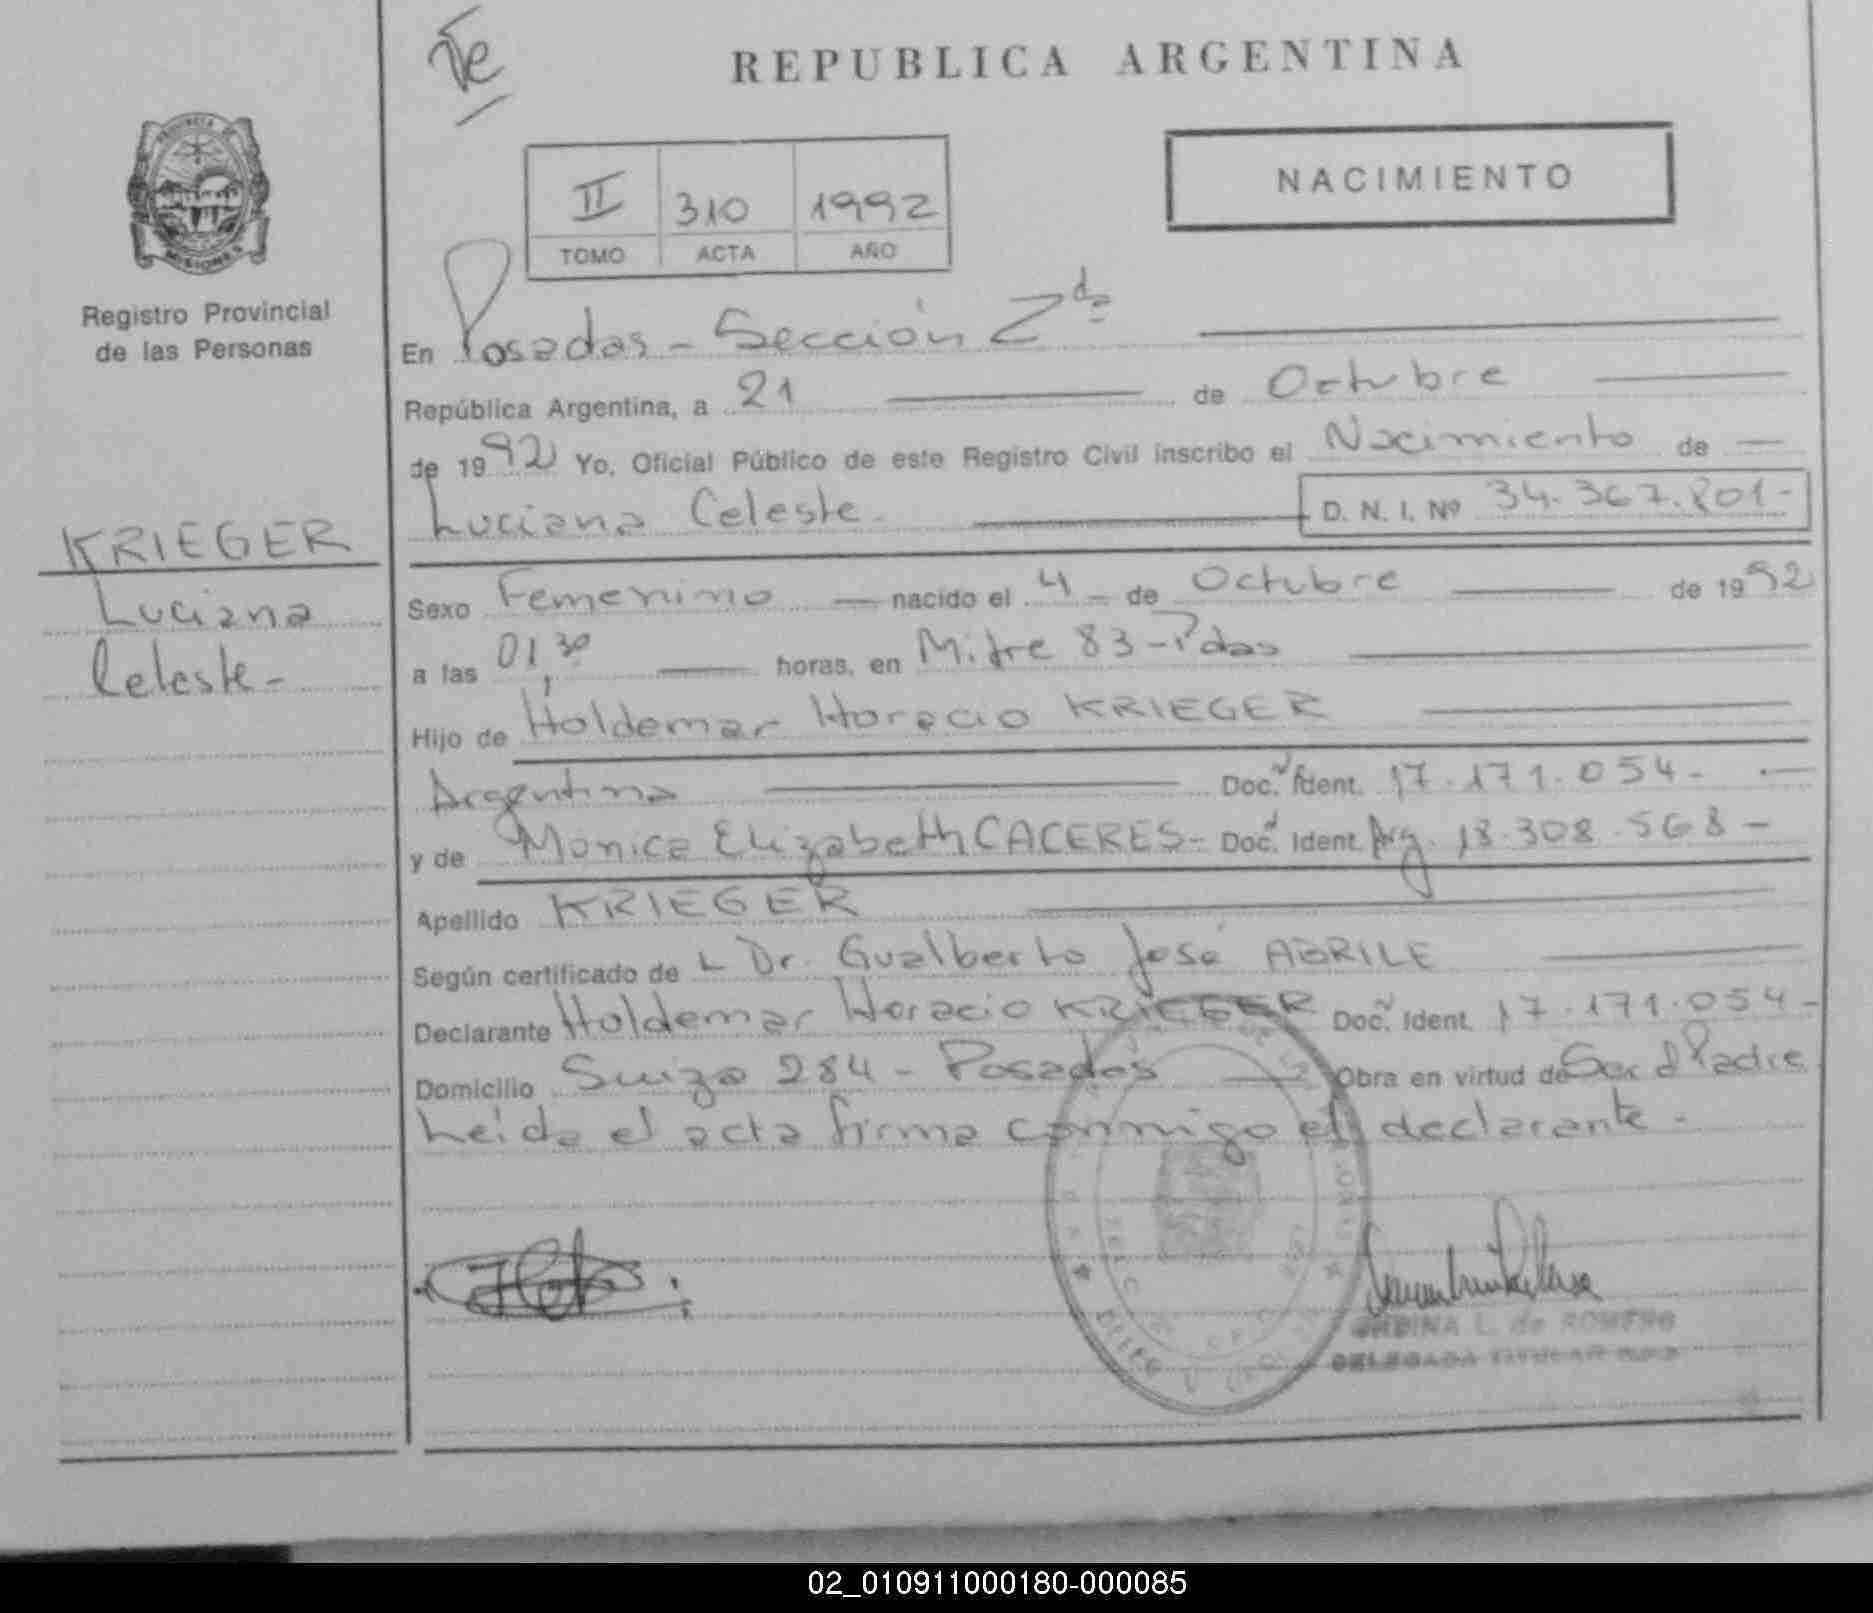 REPUBLICA ARGENTINA
NACIMIENTO
II 310 1992
TOMO ACTA AÑO
MISIONES
Registro Provincial
de las Personas
KRIEGER
Luciana
Celeste -
En Posadas - Sección 2da
República Argentina, a 21 de Octubre
de 1992 Yo, Oficial Público de este Registro Civil inscribo el Nacimiento de
Luciana Celeste - D. N. I. Nº 34.367.801-
Sexo Femenino nacido el 4 de Octubre de 1992
a las 01,30 horas, en Mitre 83 - Pdas
Hijo de Holdemar Horacio KRIEGER
Argentina Doc. Ident. 17.171.054-
y de Monica Elizabeth CACERES - Doc. Ident. Arg. 18.308.568 -
Apellido KRIEGER
Según certificado de L Dr. Gualberto José ABRILE
Declarante Holdemar Horacio KRIEGER Doc. Ident. 17.171.054-
Domicilio Suiza 284 - Posadas Obra en virtud de Ser el Padre
Leída el acta firma conmigo el declarante -
L. de ROMERO
DELEGADA TITULAR
02_010911000180-000085